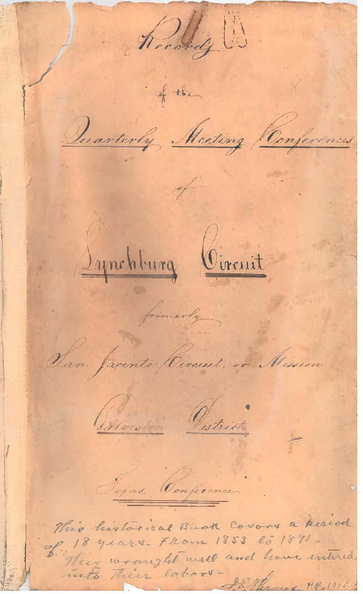 Records
of the
Quarterly Meeting Conferences
of
Lynchburg Circuit
formerly
San Jacinto Circuit, or Mission
Galveston District
Texas Conference
This historical Book covers a period
of 18 years. From 1853 to 1871.
They wrought well and have entered
into their labors-